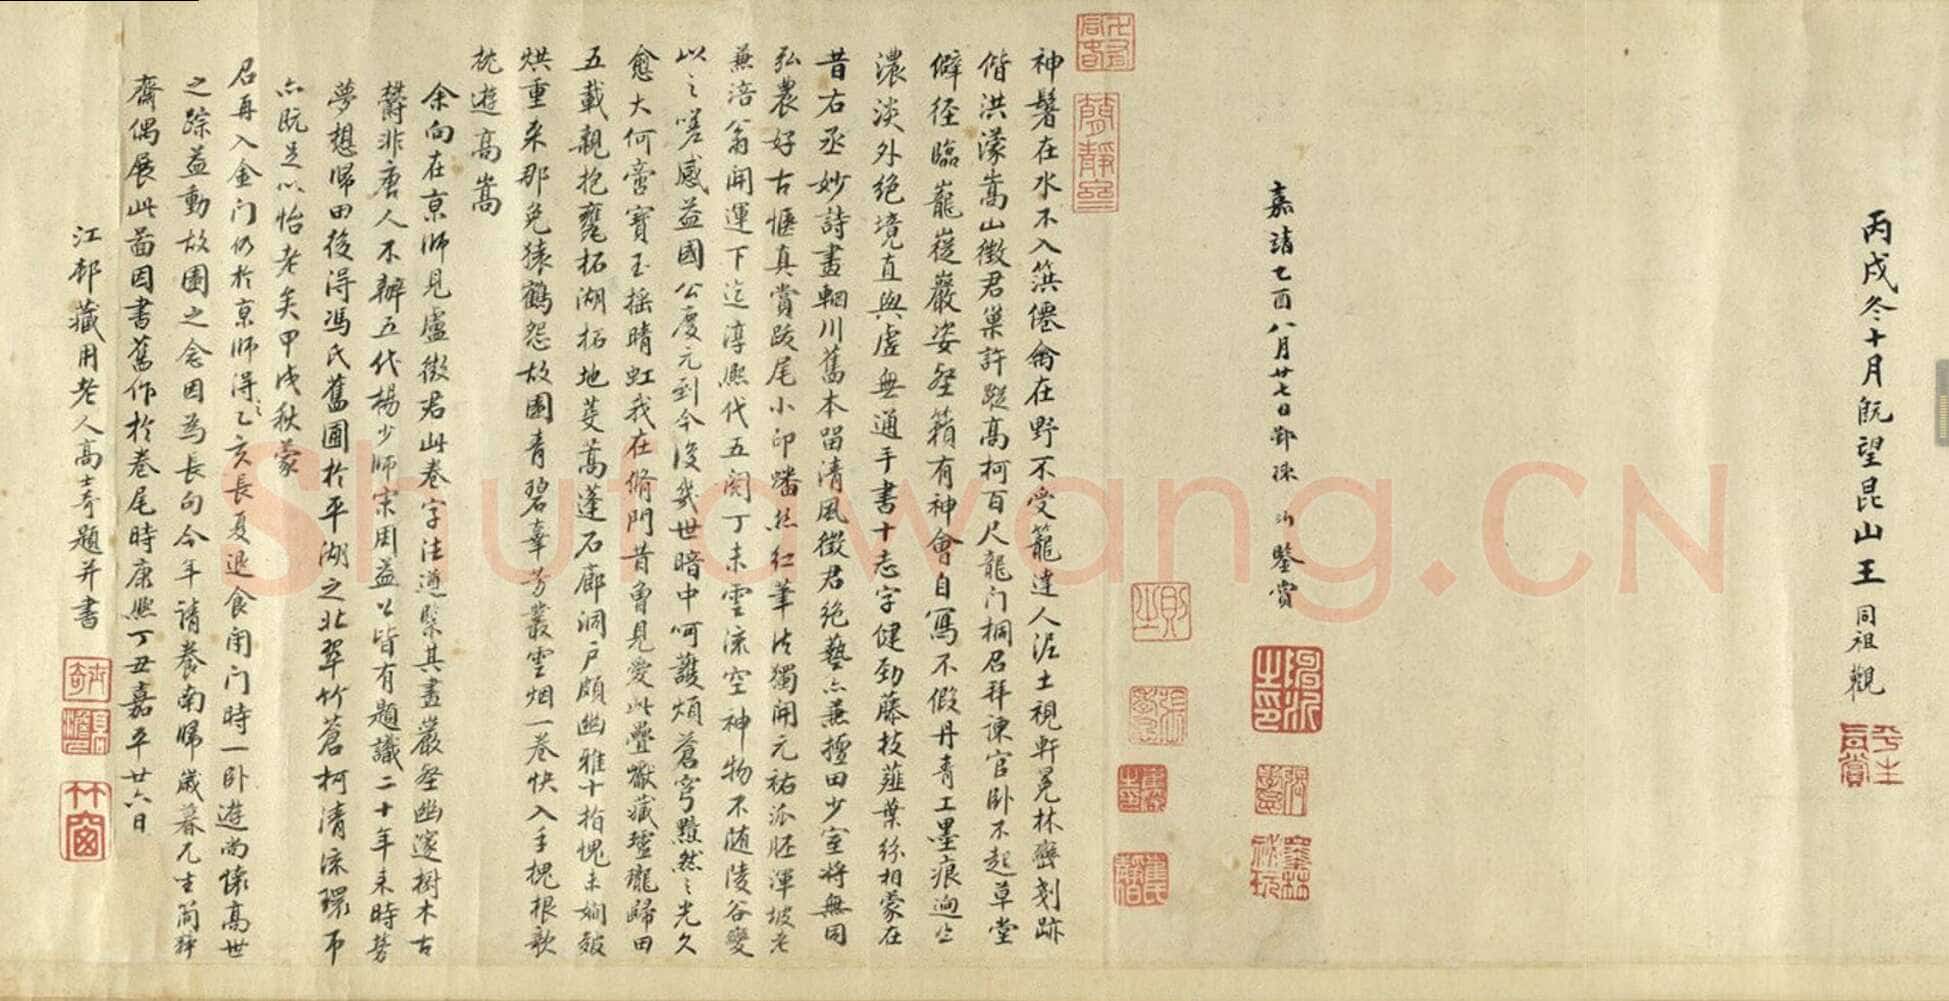 丙戌冬十月既望昆山王同祖觀
嘉靖乙酉八月廿七日鄞陳沂鑒賞
神鬐在水不入笱僊禽在野不受籠達人泥土視軒冕林巒刻跡
偕洪濛嵩山徵君巢許蹤高柯百尺龍门桐召拜諫官卧不起草堂
僻径臨巃嵸巖姿壑籟有神會自寫不假丹青工墨痕迥出
濃淡外絕境直與虛無通手書十志字健勁藤枝薤葉紛相蒙在
昔右丞妙詩畫輞川舊本留清風徵君絕藝亦兼擅田少室將無同
弘農好古愜真賞跋尾小印蟠絲紅筆法獨開元祐派胚渾坡老
兼涪翁開運下迄淳熙代五閱丁未雲流空神物不随陵谷變
以之嗟感益國公慶元到今後幾世暗中呵護煩蒼穹黯然之光久
愈大何啻寳玉搖晴虹我在脩門昔曾見愛此疊巘藏瓏璁歸田
五載親抱甕拓湖拓地芟蒿蓬石廊洞戶頗幽雅十拍愧未婀皴
烘重来那免猿鶴怨故園青碧牽芳叢雲烟一卷快入手槐根欹
枕遊高嵩
余向在京師見盧徵君此卷字法遒緊其畫巖壑幽邃樹木古
欝非唐人不辦五代楊少師宋周益公皆有題識二十年来時勞
夢想歸田後得馮氏舊圃於平湖之北翠竹蒼柯清流環帀
亦既足以怡老矣甲戌秋蒙
召再入金门仍於京師得之乙亥長夏退食闭门時一卧遊尚懷高世
之踪益動故園之念因為長句今年請養南歸歲暮瓦圭簡静
齋偶展此圖因書舊作於卷尾時康熙丁丑嘉平廿六日
江邨藏用老人高士奇題并書
簡靜齋
竹窗